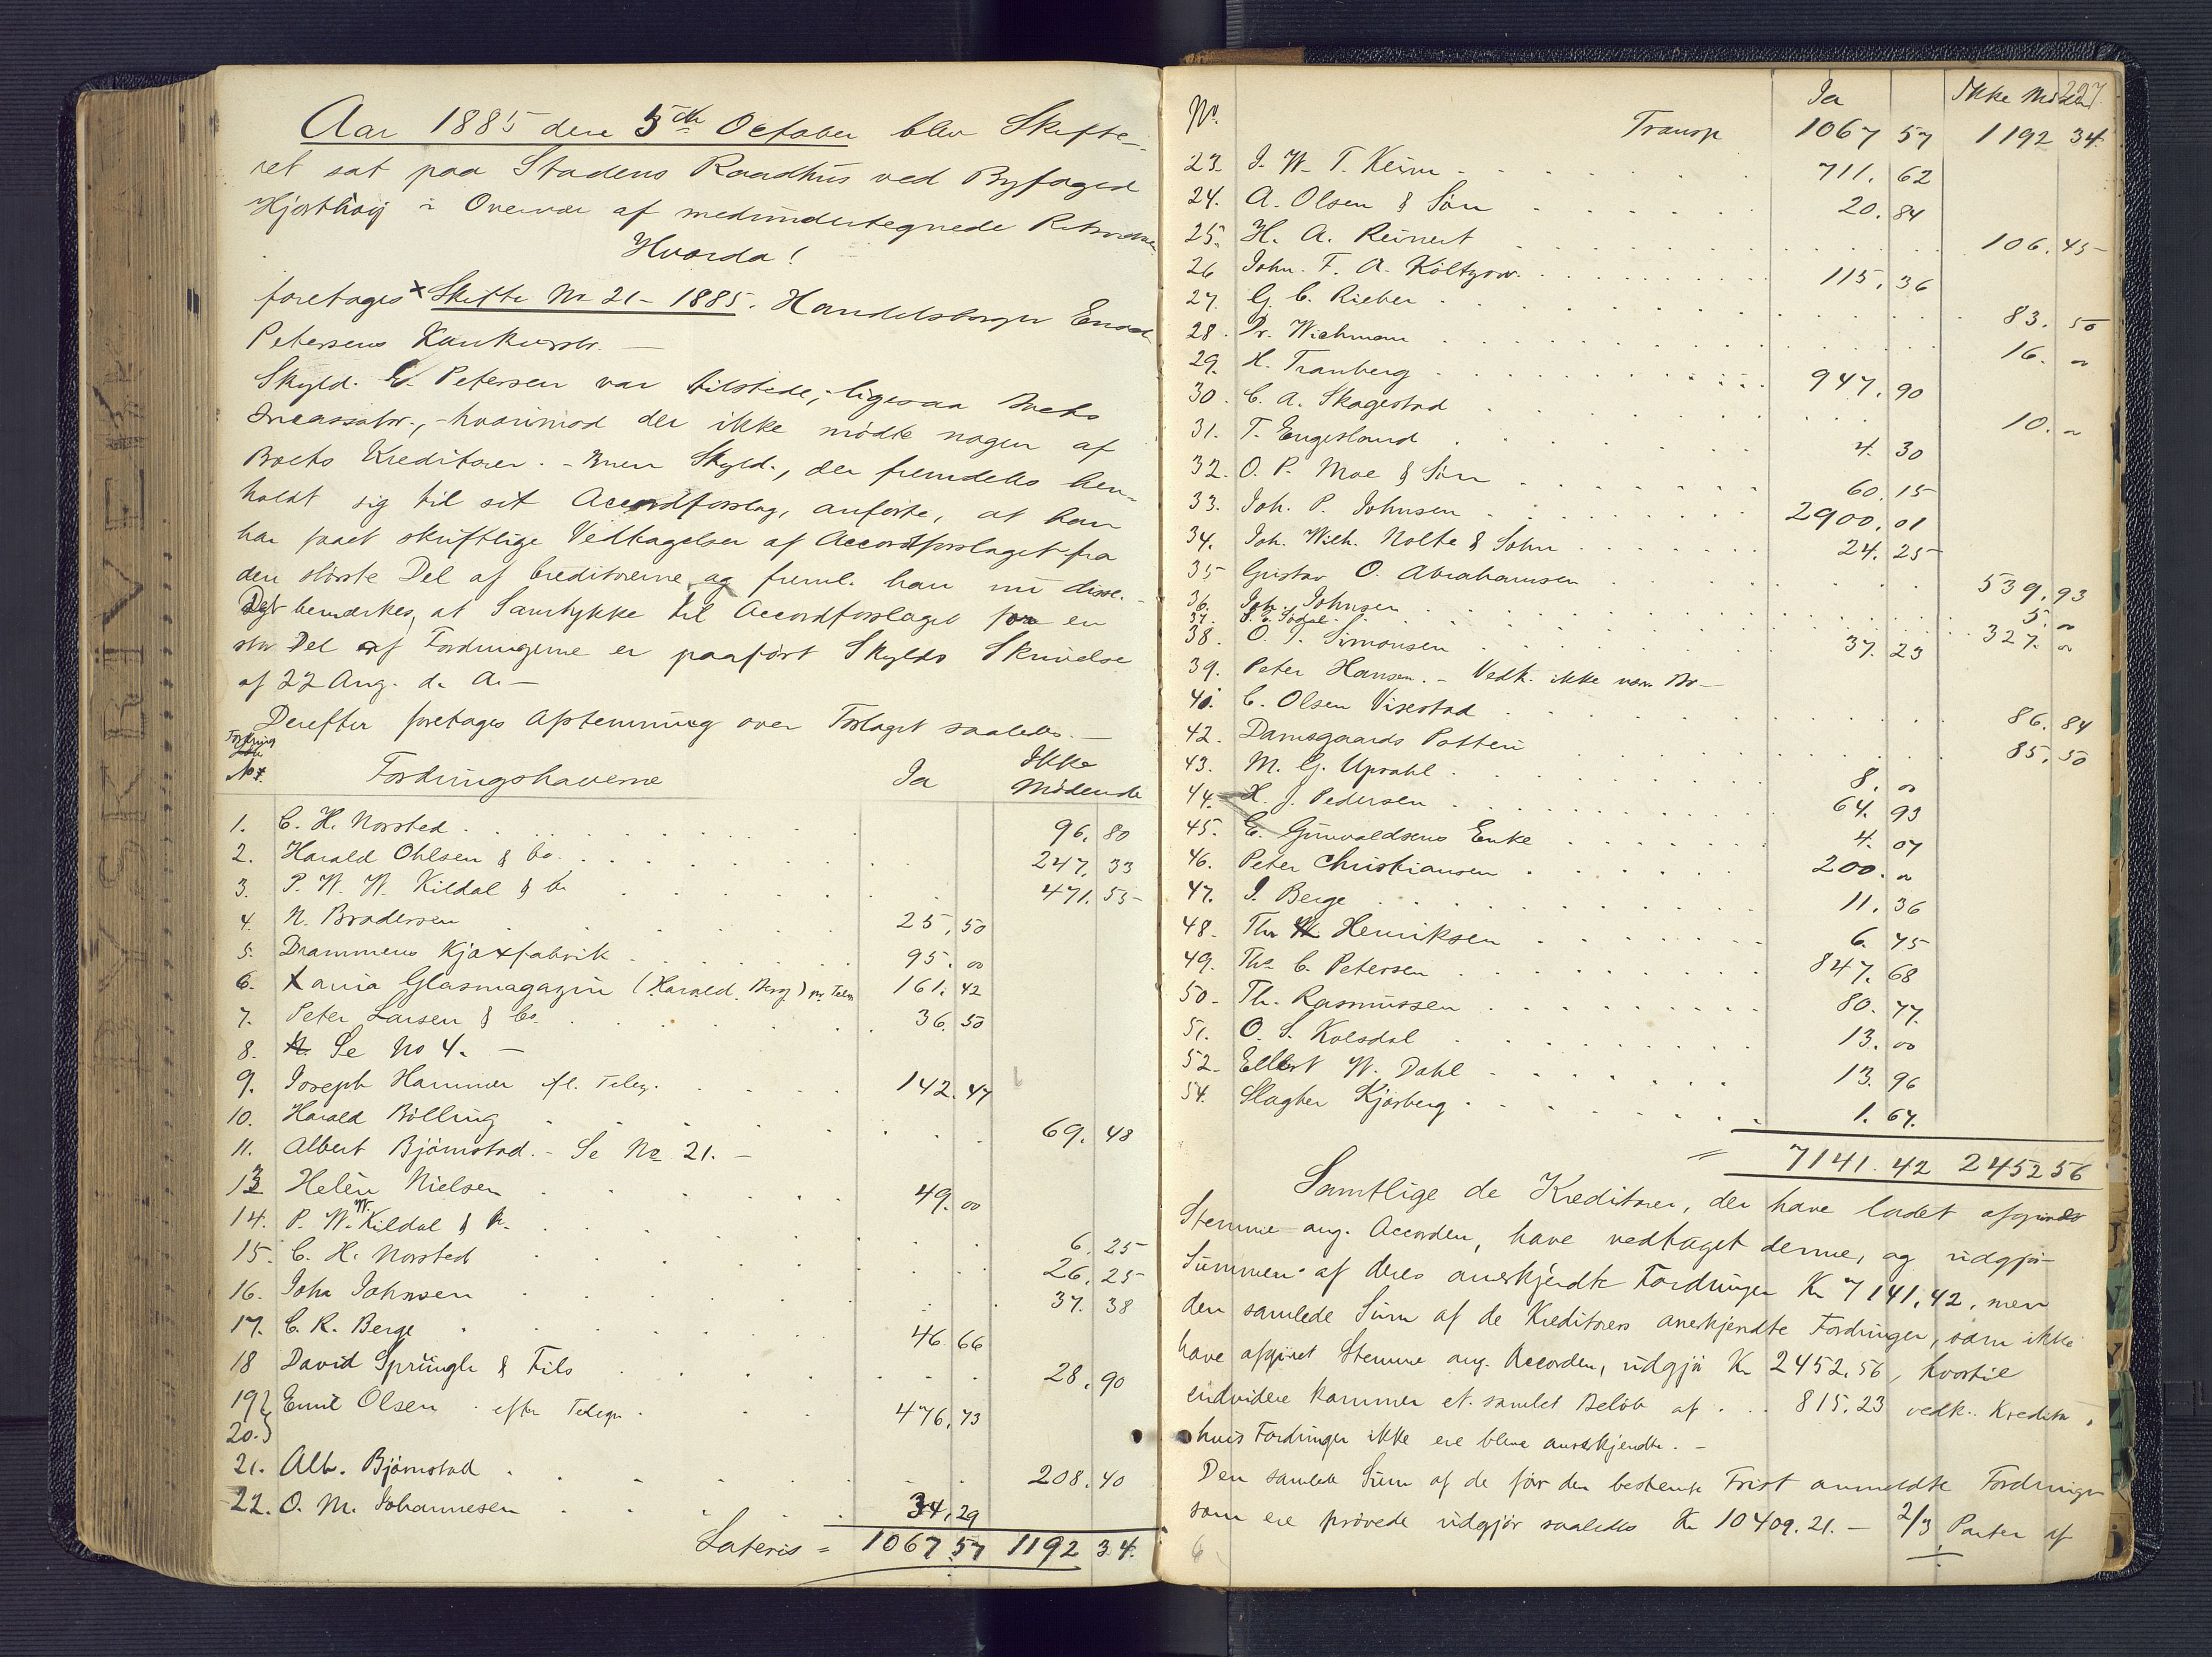 Aar 1885 den 5te October blev Skifte-
ret sat paa Stadens Raadhus ved Byfoged
Hjorthöy i Overvær af medundertegnede
Hvorda!
foretages Skifte No 21 - 1885. Handelsborger
Petersens Konkursbr. —
Skyld. E. Petersen var tilstede, ligesaa Boets
Incassator, - hvorimod der ikke mödte nogen af
Boets Kreditorer. - Skyld., der fremdeles hen-
holdt sig til sit Accordforslag, anförte, at han
har faaet skriftlige Vedtagelser af Accordforslaget fra
den störste Del af Creditorerne og freml. han nu disse. -
Det bemærkes, at Samtykke til Accordforslaget for en
stor Del af Fordringerne er paafört Skylds Skrivelse
af 22 Aug. d. A. —
Derefter foretages Afstemning over Forslaget saaledes. —
Fordring
No. Fordringshaverne Ja Ikke Mödende
1. C. H. Norsted 96. 80
2. Harald Ohlsen & Co. 247. 33
3. P. W. W. Kildal & Co 471. 55
4. N. Brodersen 25. 50
5. Drammens Kjæxfabrik 95. 00
6. Xania Glasmagazin (Harald Berg) pr. Telegr 161. 42
7. Peter Larsen & Co. 36. 50
8. Se No 4. —
9. Joseph Hammer efl. Teleg. 142. 47
10. Harald Bölling 69. 48
11. Albert Björnstad. - Se No 21. —
13 Helen Nielsen 49. 00
14. P. W. W. Kildal & Co. 6. 25
15. C. H. Norsted 26. 25
16. John Johnsen 37. 38
17. C. R. Berge 46 66
18 David Sprüngli & Fils 28. 90
19 } Emil Olsen efter Telegr. 476. 73
20. }
21. Alb. Björnstad 208. 40
22. O. M. Johannesen 34. 29
Lateris = 1067 57 1192 34.
227
No. Ja Ikke Möden
Transp 1067 57 1192 34
23. J. W. T. Keim 711. 62
24. A. Olsen & Sön 20. 84
25. H. A. Reinert 106. 45
26 John. F. A. Költzow. 115. 36
27. G. C. Rieber 83. 50
28. Dr. Wichman 16. 00
29. H. Tranberg 947. 90
30. C. A. Skagestad 10. 00
31. T. Engesland 4. 30
32. O. P. Moe & Sön 60. 15
33. Joh. P. Johnsen 2900. 01
34. Joh. Wilh. Nolte & Sohn 24. 25
35 Gustav O. Abrahamsen 539. 93
36. Joh. Johnsen 5. 00
37. Södal 327. 00
38. O. T. Simonsen 37. 23
39. Peter Hansen. - Vedk. ikke Bo —
40. C. Olsen Vixestad 86. 84
42. Damsgaards Potteri 85. 50
43. M. G. Upvahl 8. 00
44. H. J. Pedersen 64. 93
45. E. Gunvaldsens Enke 4. 07
46. Peter Christiansen 200. 00
47. J. Berge 11. 36
48. Thr Henriksen 6. 45
49. Ths C. Petersen 847. 68
50. Th. Rasmussen 80. 77.
51. O. S. Kolsdal 13. 00
52. Ellert W. Dahl 13. 96
54. Slagter Kjörberg 1. 67.
= 7141. 42 2452 56
Samtlige de Kreditorer, der have ladet afgive
Stemme ang. Accorden, have vedtaget denne, og udgjör
Summen af deres anerkjendte Fordringer Kr 7141.42, men
den samlede Sum af de Kreditorers anerkjendte Fordringer, som ikke
have afgivet Stemme ang. Accorden, udgjör Kr 2452,56, hvortil
endvidere kommer et samlet Belöb af . . 815.23 vedk. Kreditr.
hvis Fordringer ikke ere bleve anerkjendte. -
Den samlede Sum af de för den bestemte Frist anmeldte Fordringer
som ere prövede udgjör saaledes Kr 10409.21. — 2/3 Parter af